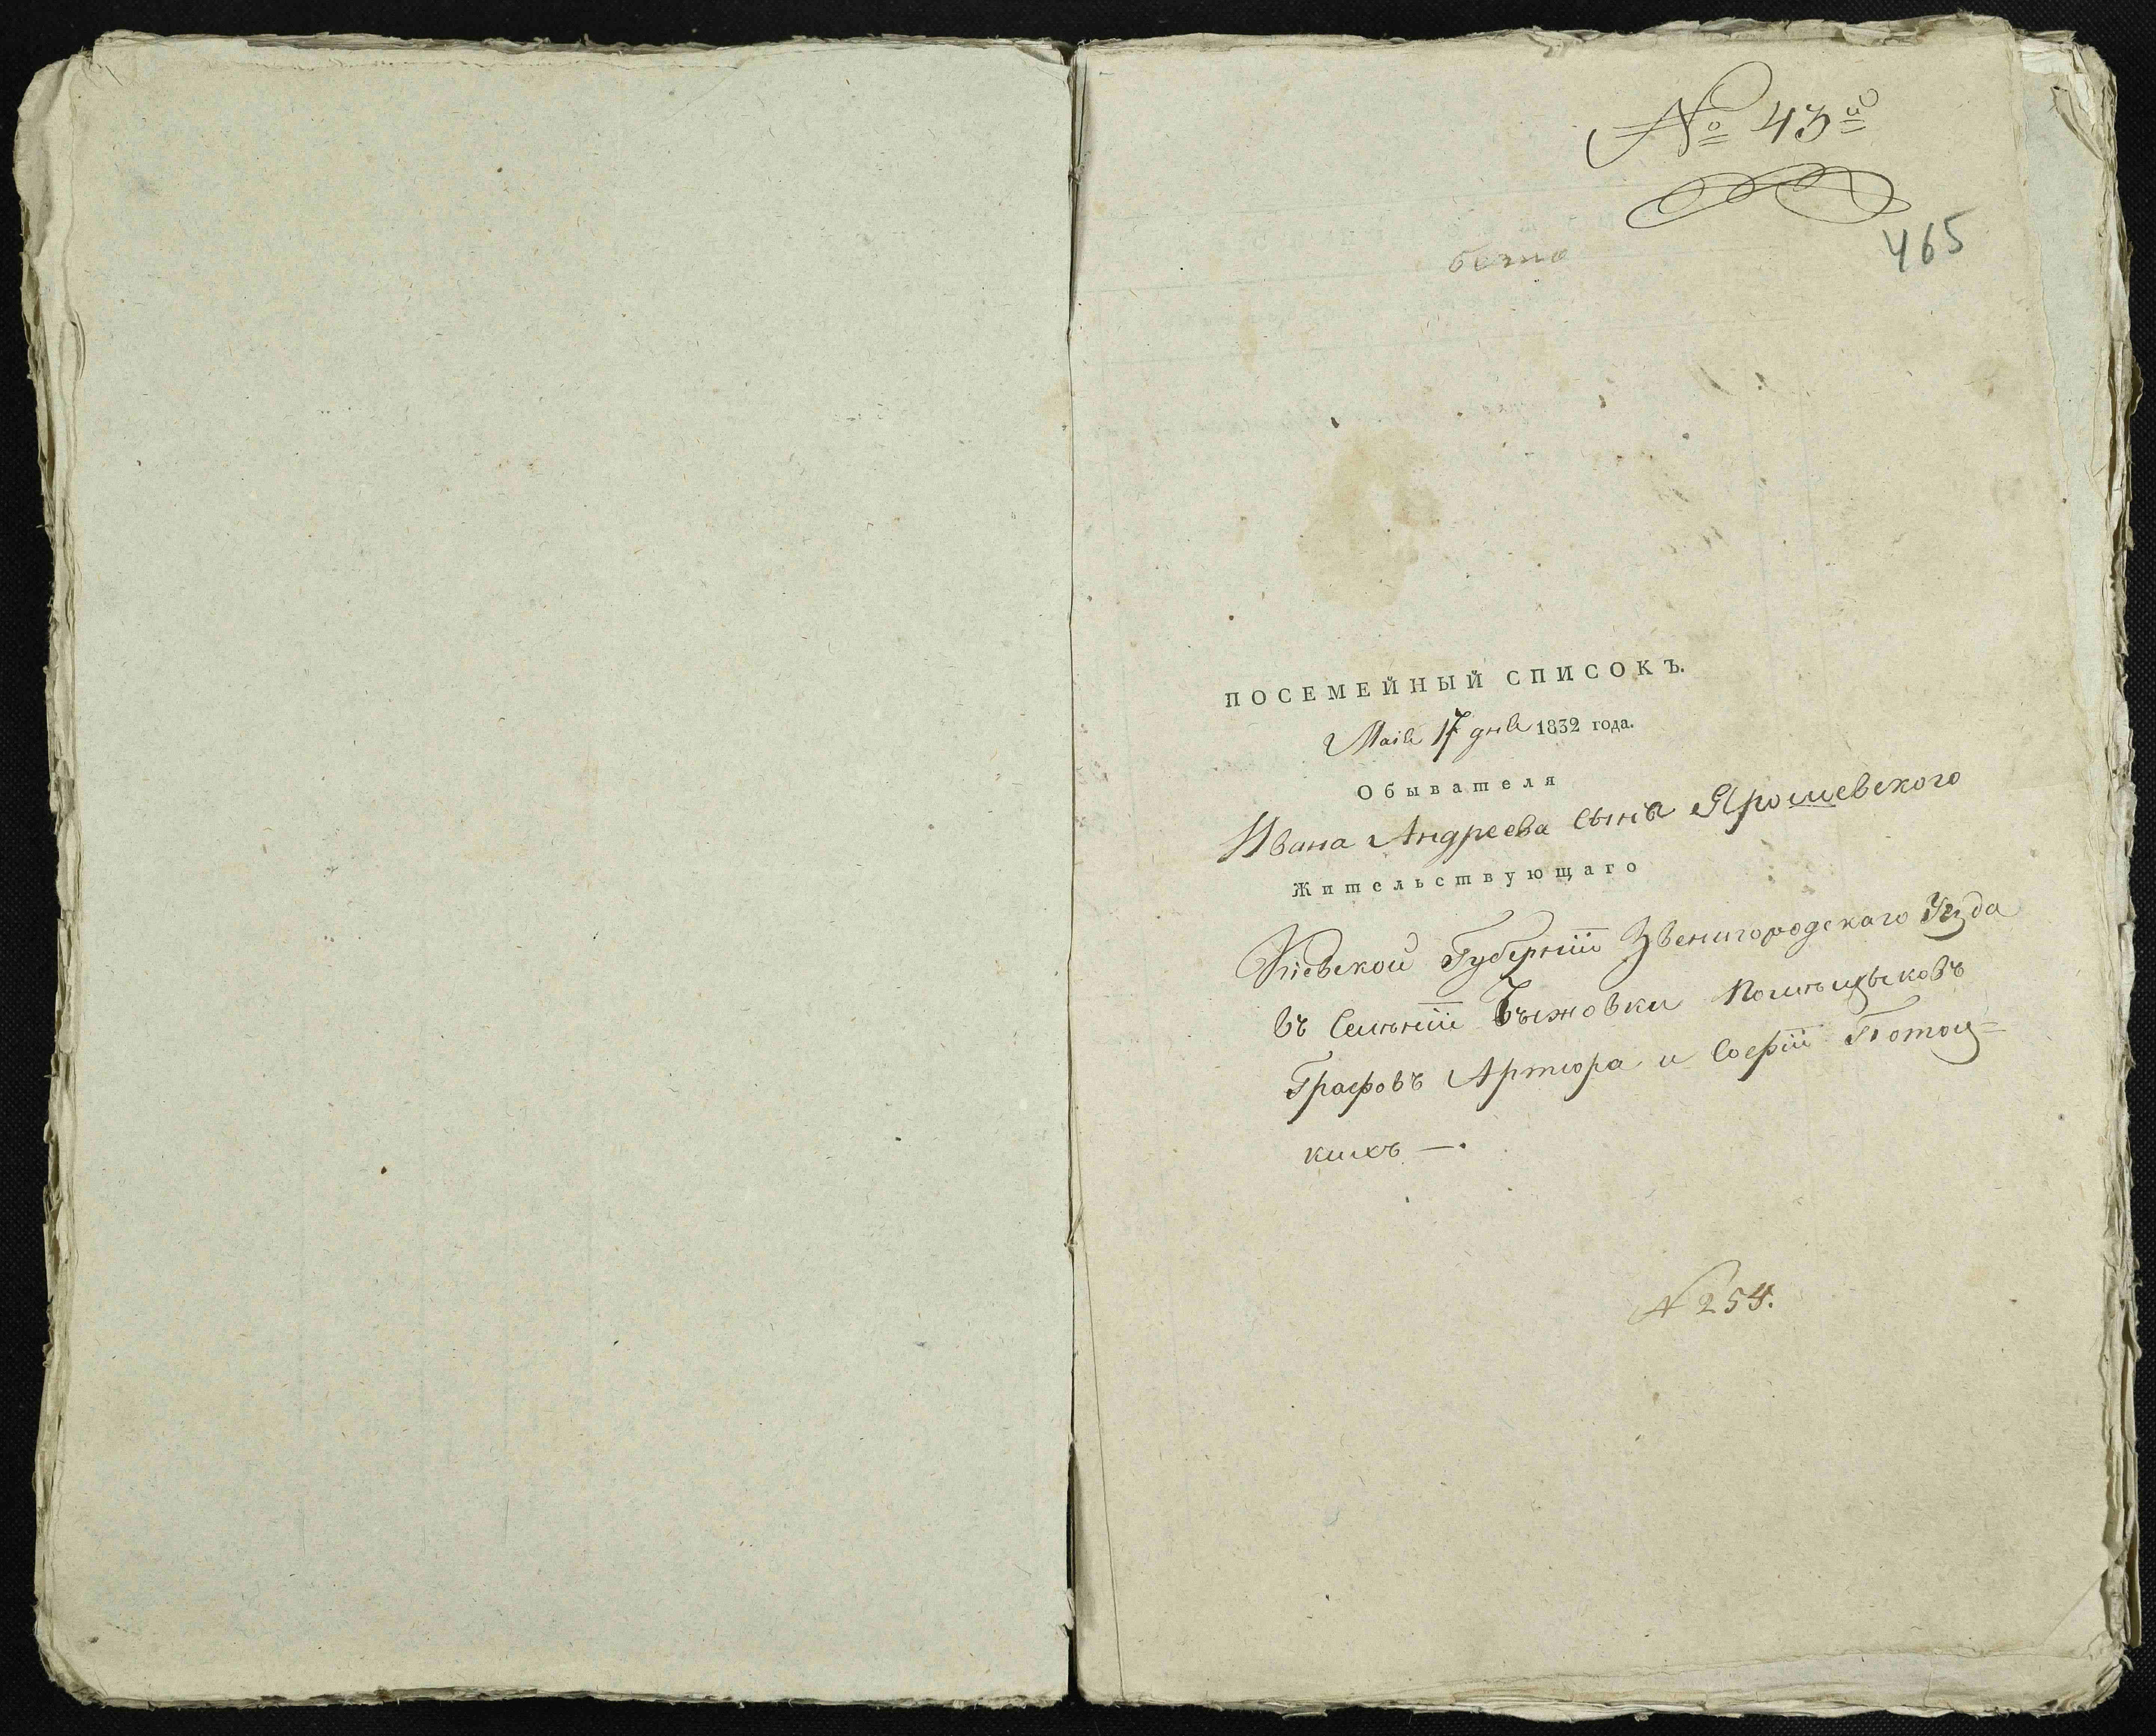 № 43й
465
ПОСЕМЕЙНЫЙ СПИСОКЪ.
Маія 17 дня 1832 года.
Обывателя
Ивана Андреева сына Ярошевского
Жительствующаго
Кіевской Губерніи Звенигородскаго Уѣзда
въ Селѣніи Быжовки Помѣщыковъ
Графовъ Артюра и Софіи Потоц=
кихъ —.
№ 254.